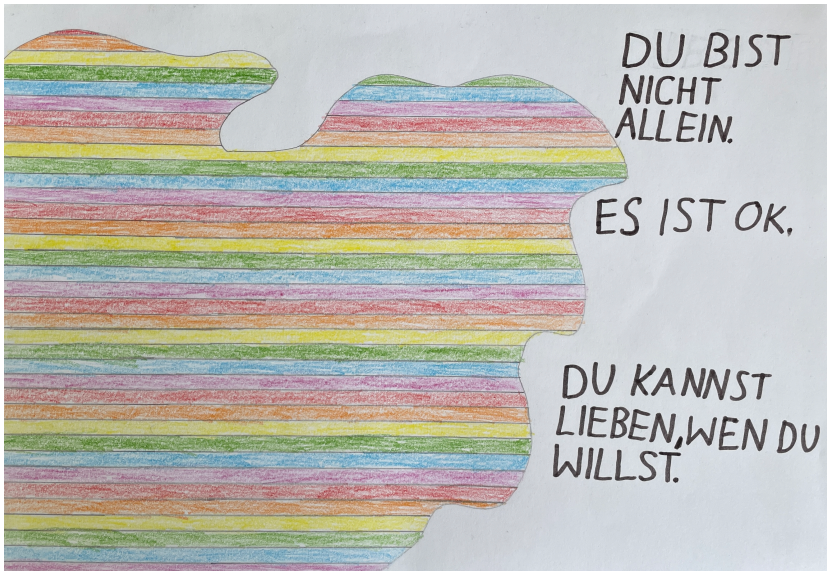 DU BIST
NICHT
ALLEIN.
ES IST OK.
DU KANNST
LIEBEN, WEN DU
WILLST.